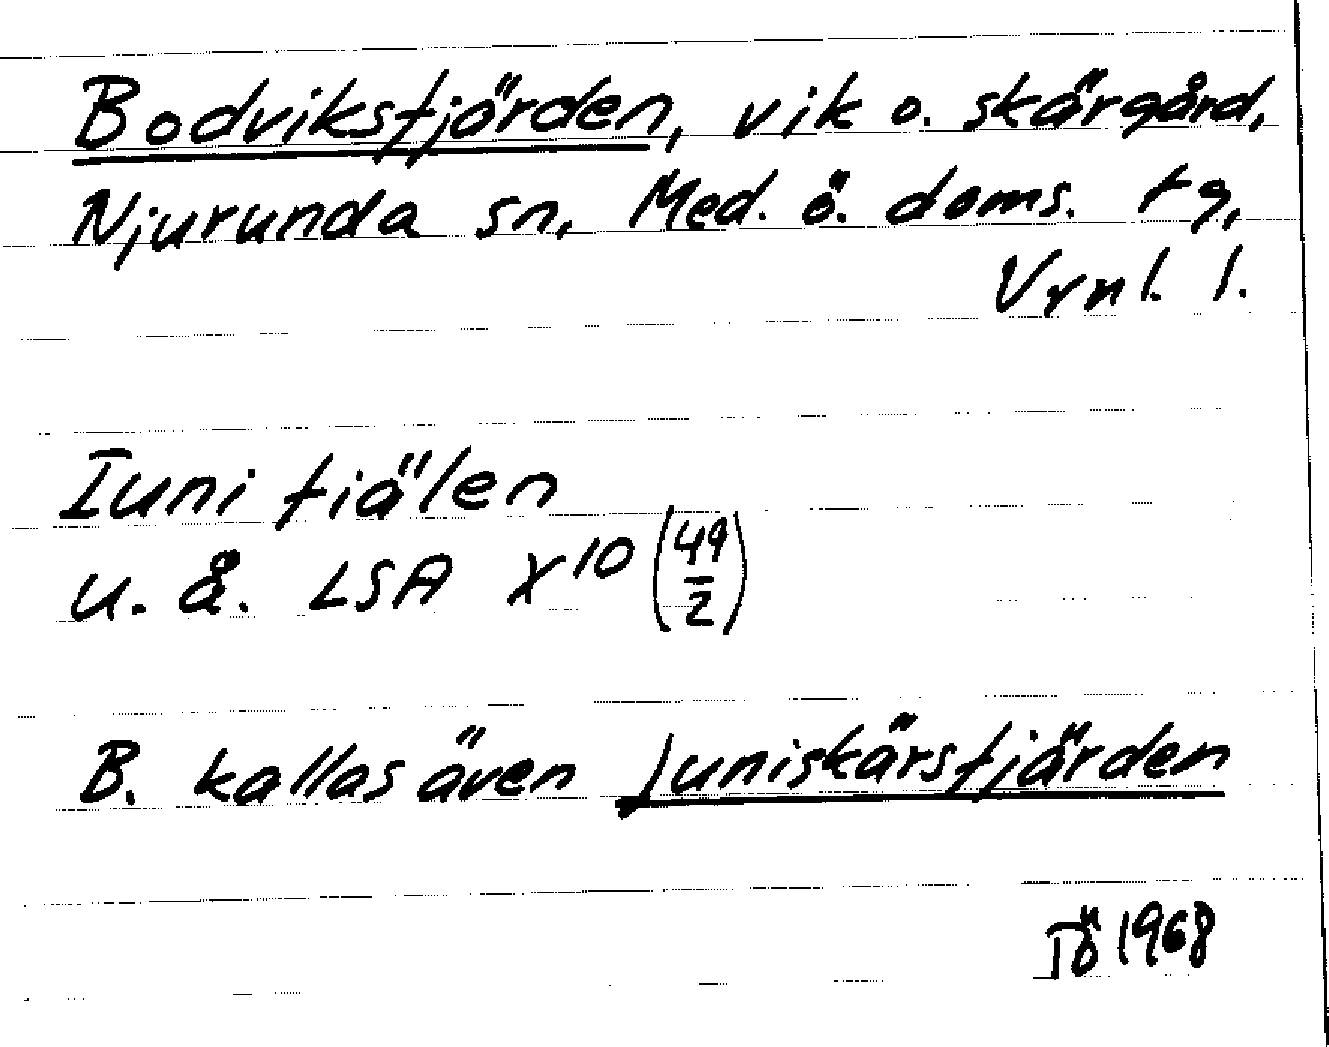 Bodviksfjärden, vik o. skärgård,
Njurunda sn, Med. ö. doms. tg,
Vrnl. l.
Iuni fiälen
u. å. LSA X¹⁰ (49/2)
B. kallas även Juniskärsfjärden
IÖ 1968